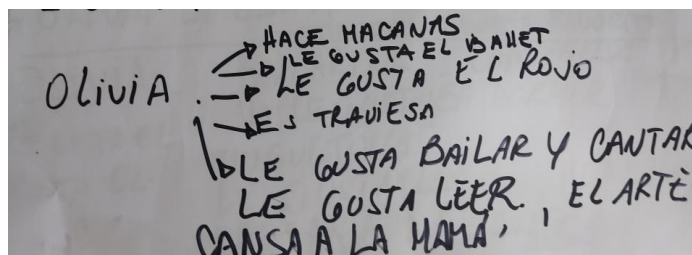 HACE MACANAS
LE GUSTA EL BALLET
OLIVIA LE GUSTA EL ROJO
ES TRAVIESA
LE GUSTA BAILAR Y CANTAR
LE GUSTA LEER. EL ARTE
CANSA A LA MAMÁ,